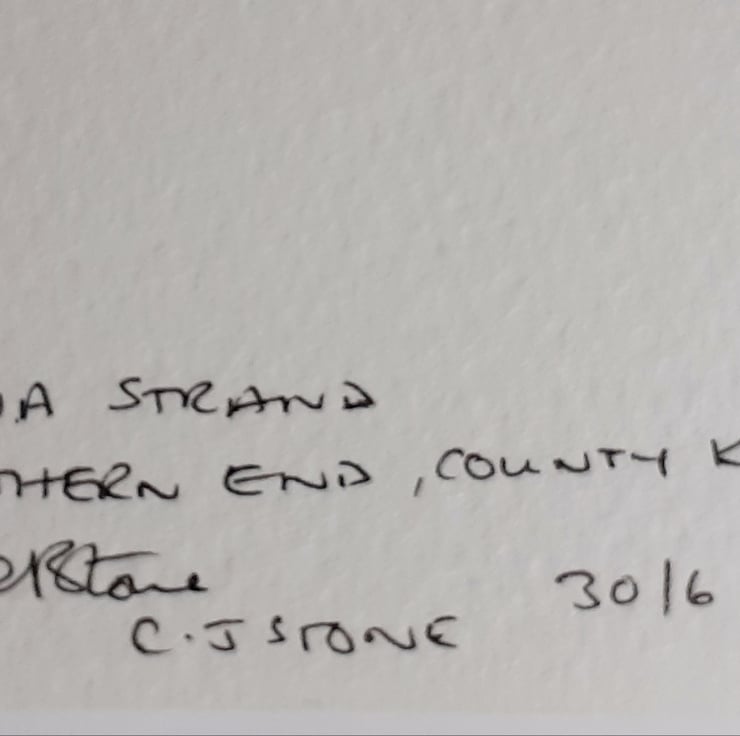 A STRAND
THERN END, COUNTY K
Stone
C. J STONE 30/6